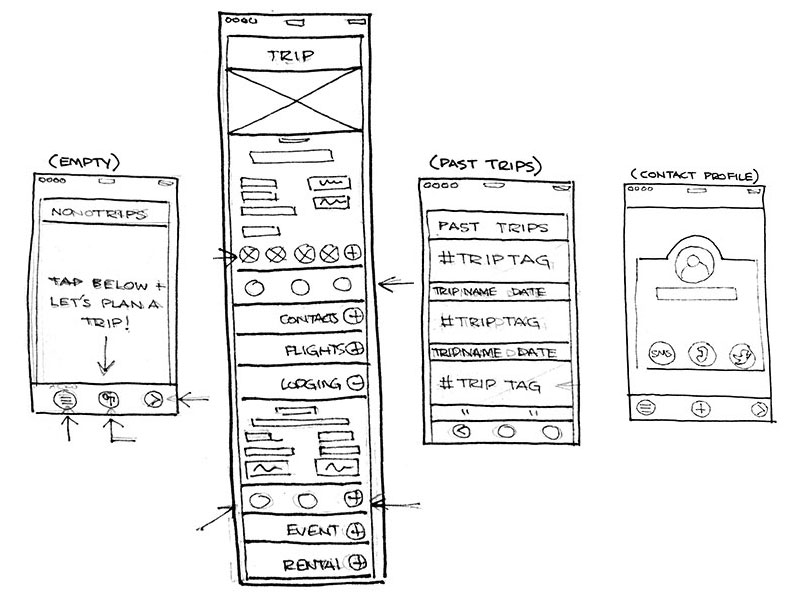 (EMPTY)
NONOTRIPS
TAP BELOW +
LET'S PLAN A
TRIP!
TRIP
CONTACTS
FLIGHTS
LODGING
EVENT
RENTAL
(PAST TRIPS)
PAST TRIPS
#TRIPTAG
TRIPNAME DATE
#TRIPTAG
TRIPNAME DATE
#TRIP TAG
" "
(CONTACT PROFILE)
SMS